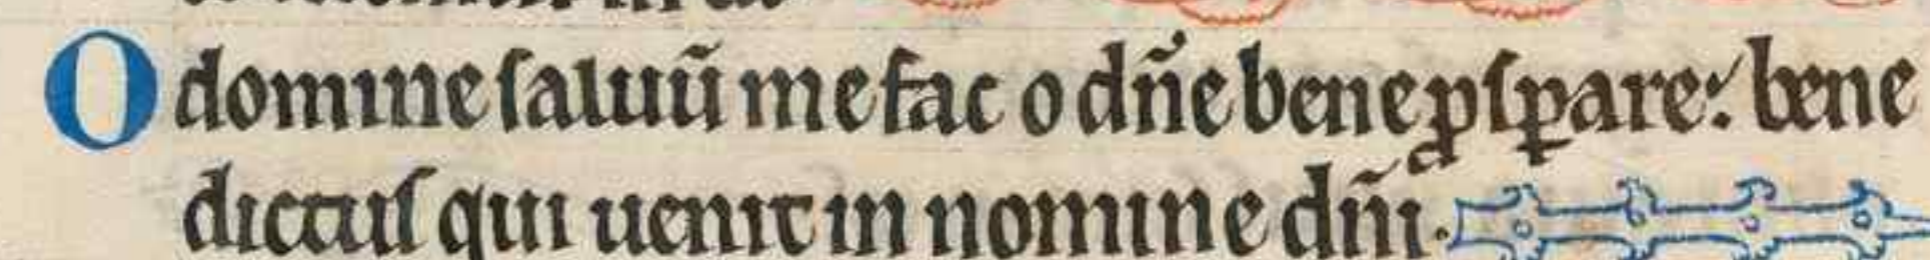 O domine ſaluū me fac o dn̄e bene ꝓſꝑare: bene
dictuſ qui uenit in nomine dn̄i.